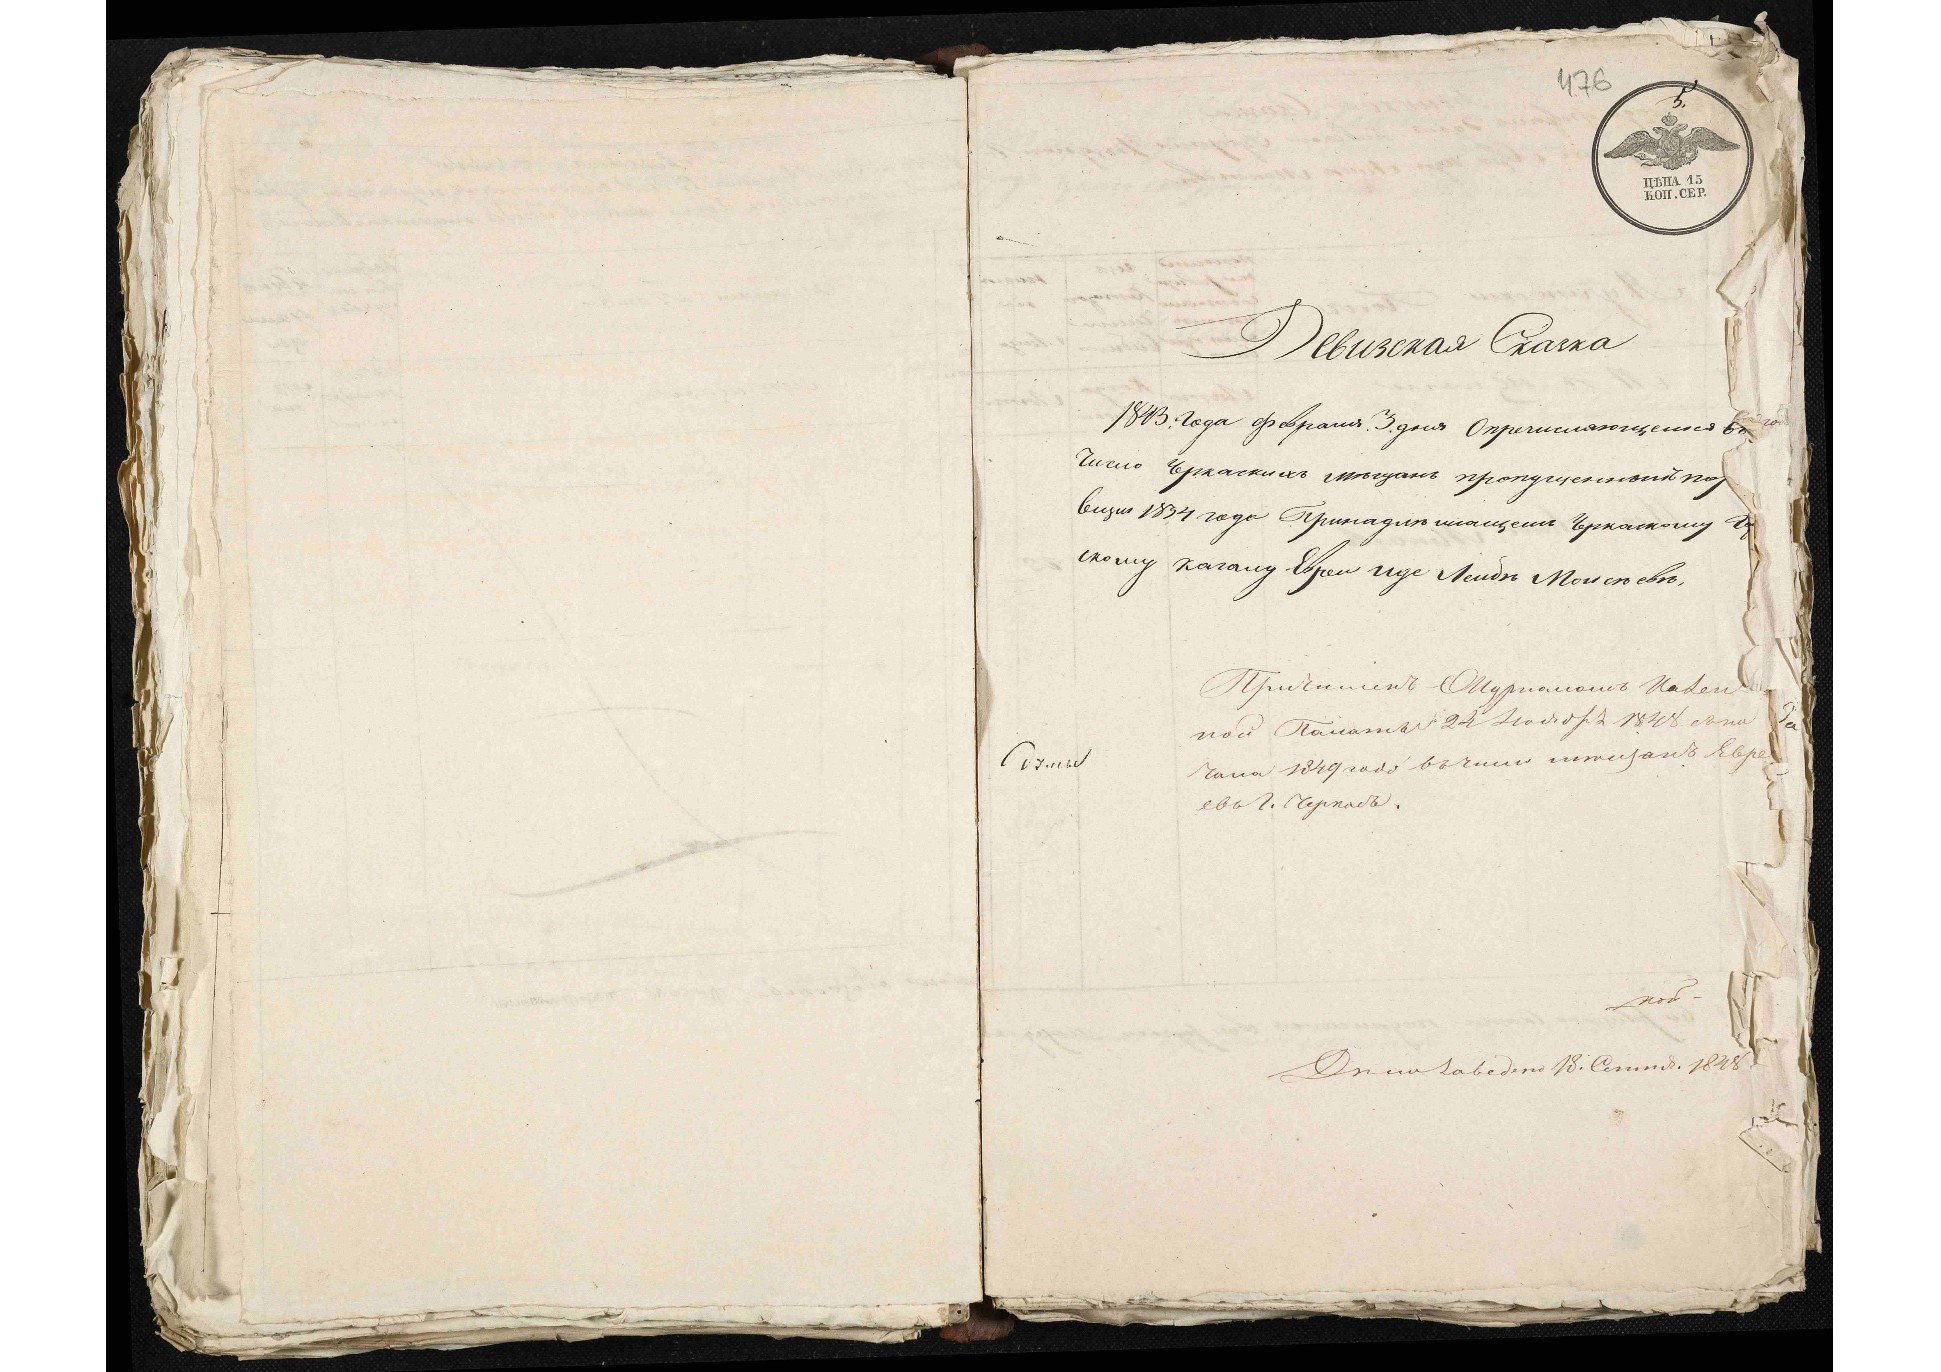 476
5.
ЦѢНА 15
КОП. СЕР.
Ревизская Сказка
1843. Года февраля. 3. дня О пречисляющемся въ
число Черкаскихъ мѣщанъ пропущенный по
визіи 1834 года Принадлѣжащемъ Черкаскому
скому кагалу Евреи Лейбѣ Моисѣевѣ.
Причисленъ Журналомъ Казен
ной Палаты 24 Ноября 1848 съ на
чала 1849 года въ число мѣщанъ Евре
евъ г. Черкасъ.
Дѣло заведено 13. Сентяб. 1848